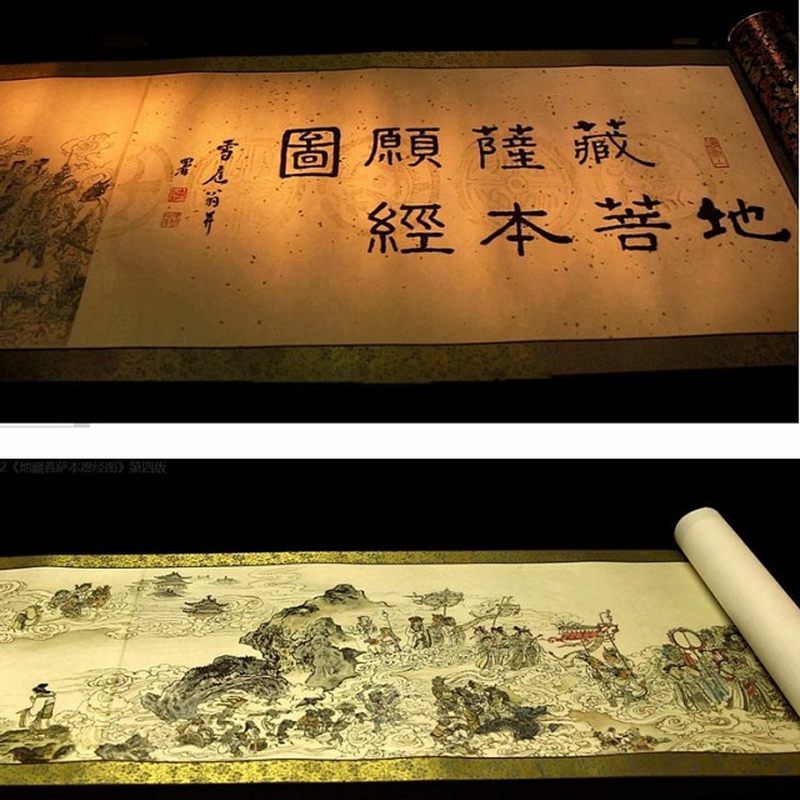 地藏菩薩本願經圖
雪庭翁并
署
2《地藏菩萨本愿经图》第四版